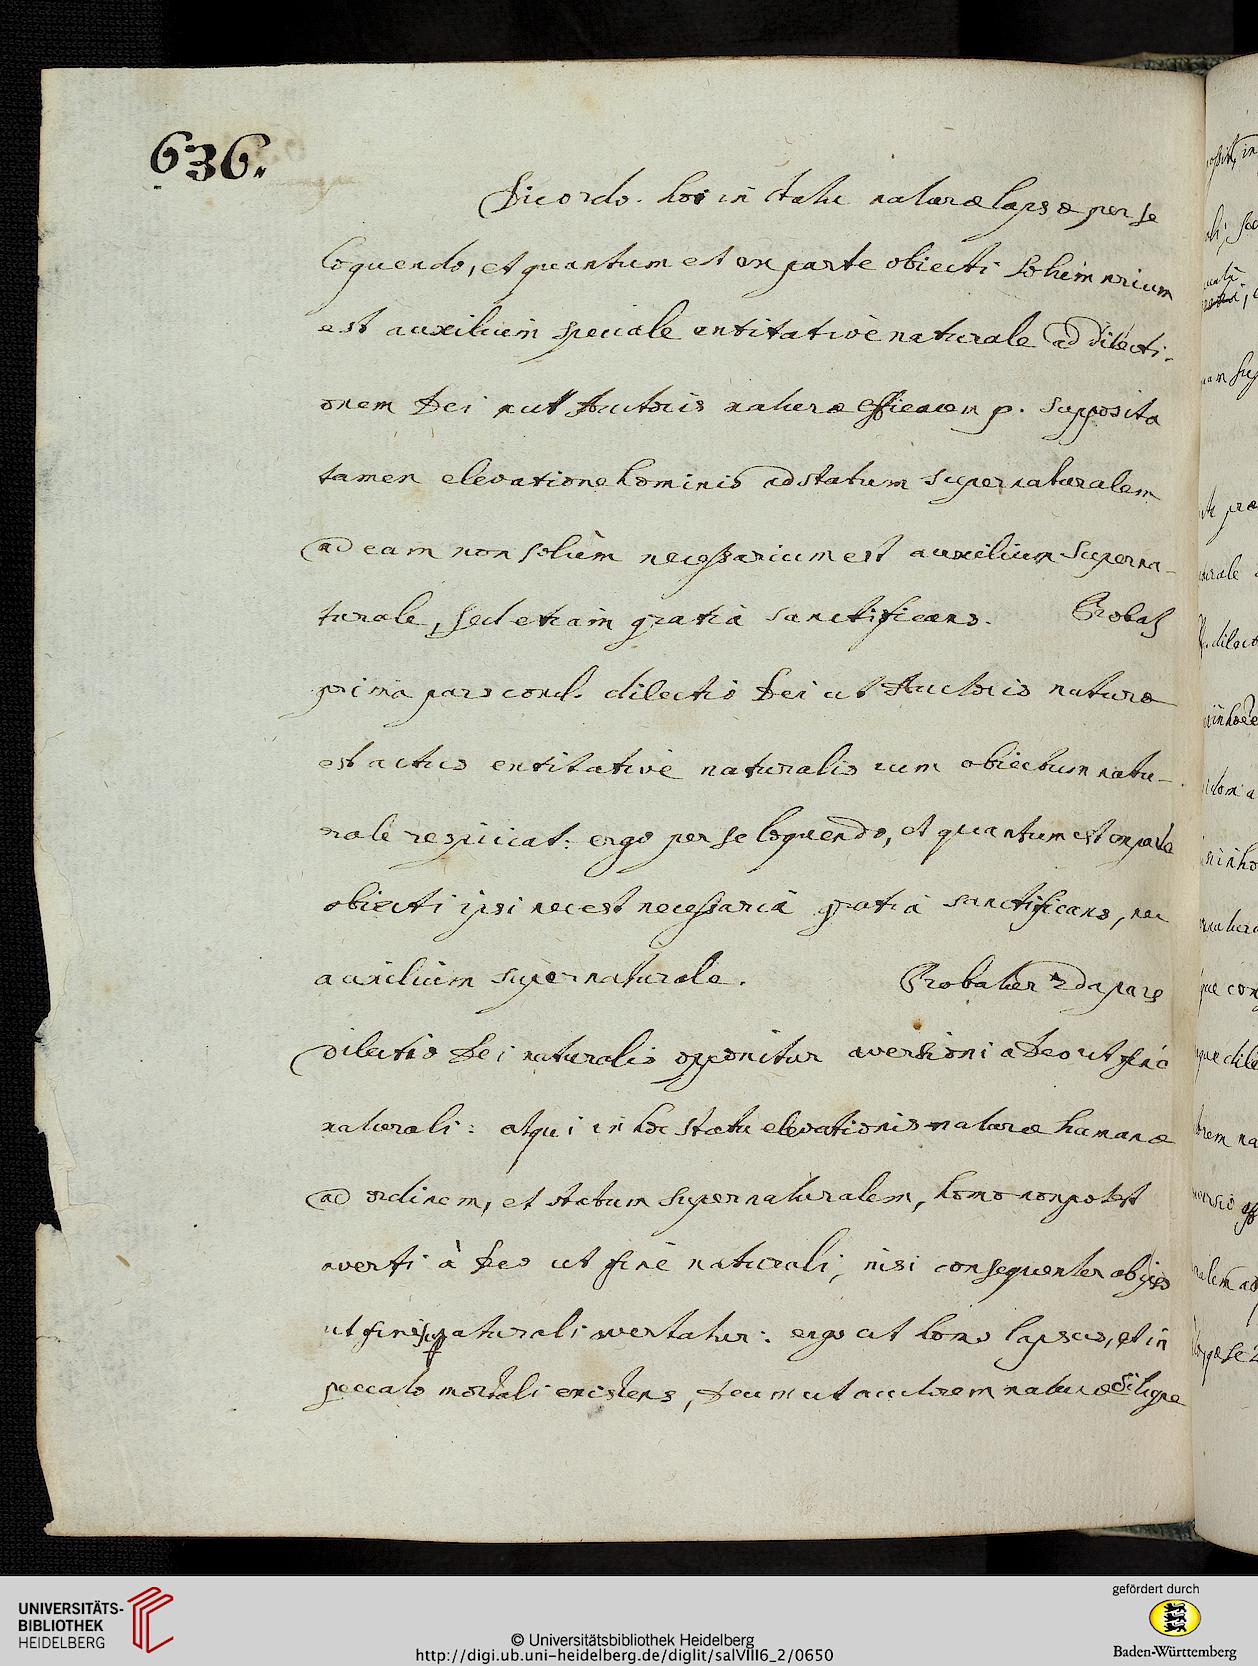 636.
Dico 3do. hoi in statu naturæ lapsæ per se
loquendo, et quantum est ex parte obiecti solum nrium
est auxilium speciale entitativè naturale ad dilecti-
onem Dei ut Authoris naturæ efficacem p. supposita
tamen elevatione hominis ad statum supernaturalem
ad eam non solùm necessarium est auxilium superna-
turale, sed etiam gratia sanctificans. Probaʃ
prima pars concl. dilectio Dei ut Auctoris naturæ
est actus entitativè naturalis cum obiectum natu-
rale respiciat: ergo per se loquendo, et quantum est ex parte
obiecti ipsi nec est necessaria gratia sanctificans, nec
auxilium supernaturale. Probatur 2da pars
dilectio Dei naturalis opponitur aversioni a Deo ut fine
naturali: atqui in hoc statu elevationis naturæ humanæ
ad ordinem, et statum supernaturalem, homo non potest
averti à Deo ut fine naturali, nisi consequenter ab ipso
ut fine supnaturali avertatur: ergo ut homo lapsus, et in
peccato mortali existens, Deum ut auctorem naturæ diligne
UNIVERSITÄTS-
BIBLIOTHEK
HEIDELBERG
© Universitätsbibliothek Heidelberg
http://digi.ub.uni-heidelberg.de/diglit/salVIII6_2/0650
gefördert durch
Baden-Württemberg